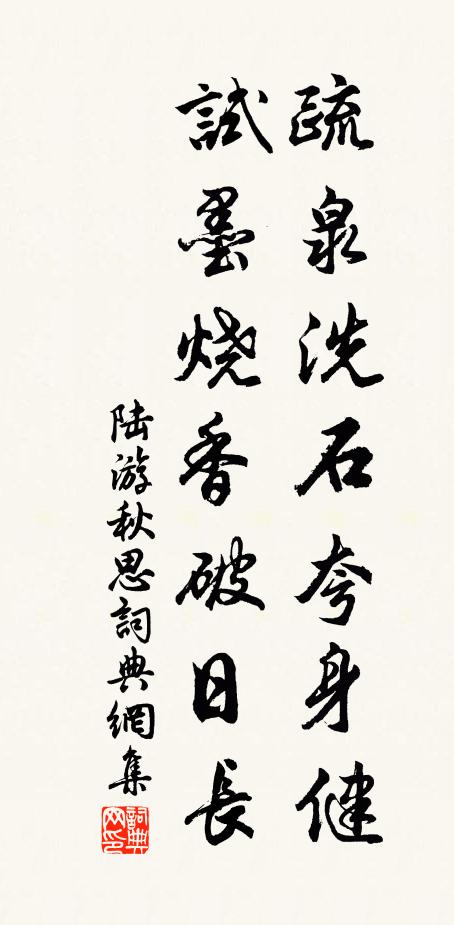 疏泉洗石夸身健
試墨燒香破日長
陆游秋思詞典網集
詞典网印